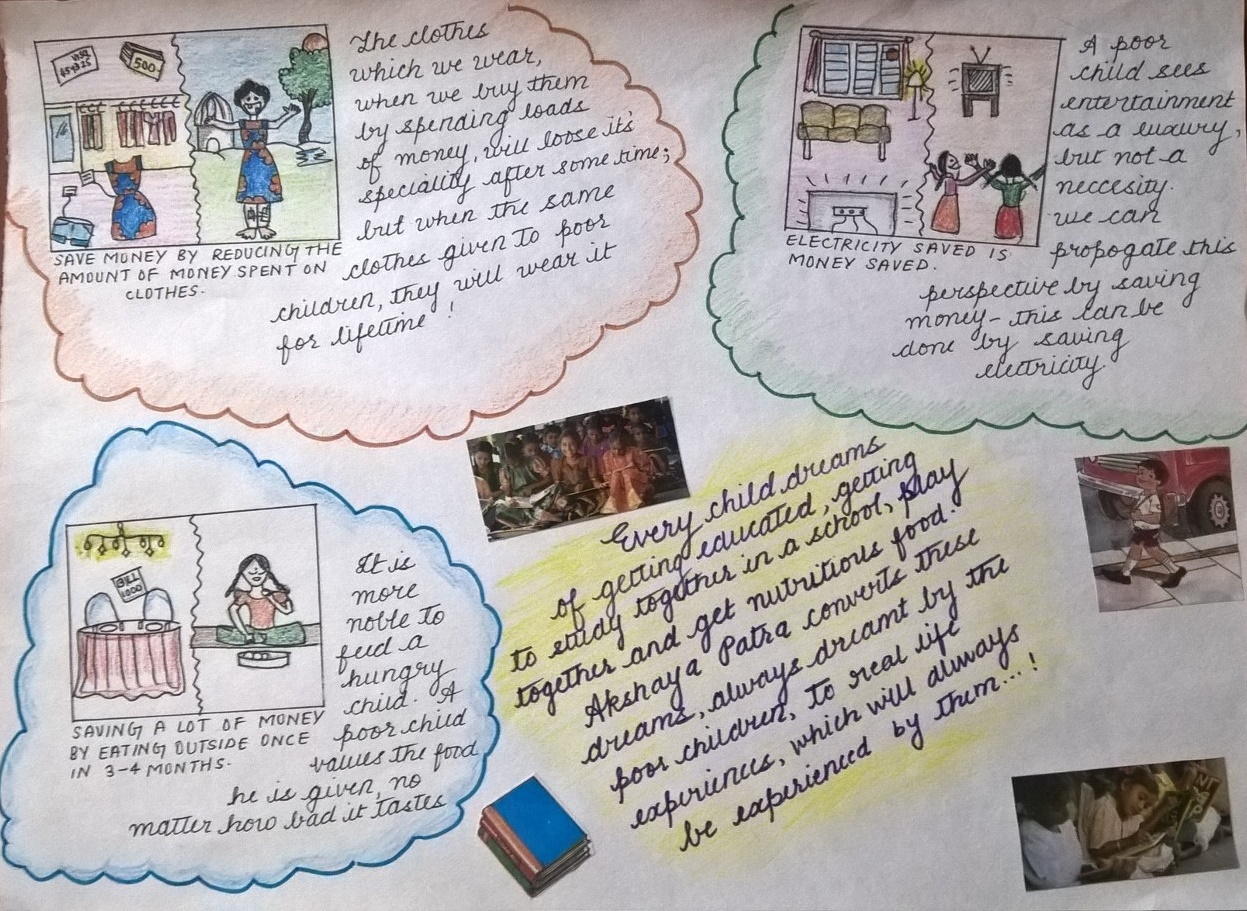 The clothes
which we wear,
when we buy them
by spending loads
of money, will loose it's
speciality after some time;
but when the same
clothes given to poor
children, they will wear it
for lifetime !
500
SAVE MONEY BY REDUCING THE
AMOUNT OF MONEY SPENT ON
CLOTHES.
A poor
child sees
entertainment
as a luxury,
but not a
neccesity.
we can
propogate this
perspective by saving
money- this can be
done by saving
electricity.
ELECTRICITY SAVED IS
MONEY SAVED.
BILL
1000
SAVING A LOT OF MONEY
BY EATING OUTSIDE ONCE
IN 3-4 MONTHS.
It is
more
noble to
feed a
hungry
child. A
poor child
values the food
he is given, no
matter how bad it tastes
Every child dreams
of getting educated, getting
to study together in a school, play
together and get nutritious food.
Akshaya Patra converts these
dreams, always dreamt by the
poor children, to real life
experiences, which will always
be experienced by them...!